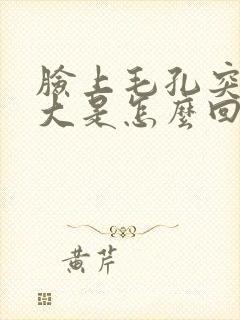 臉上毛孔突
大是怎麼回
黄芹